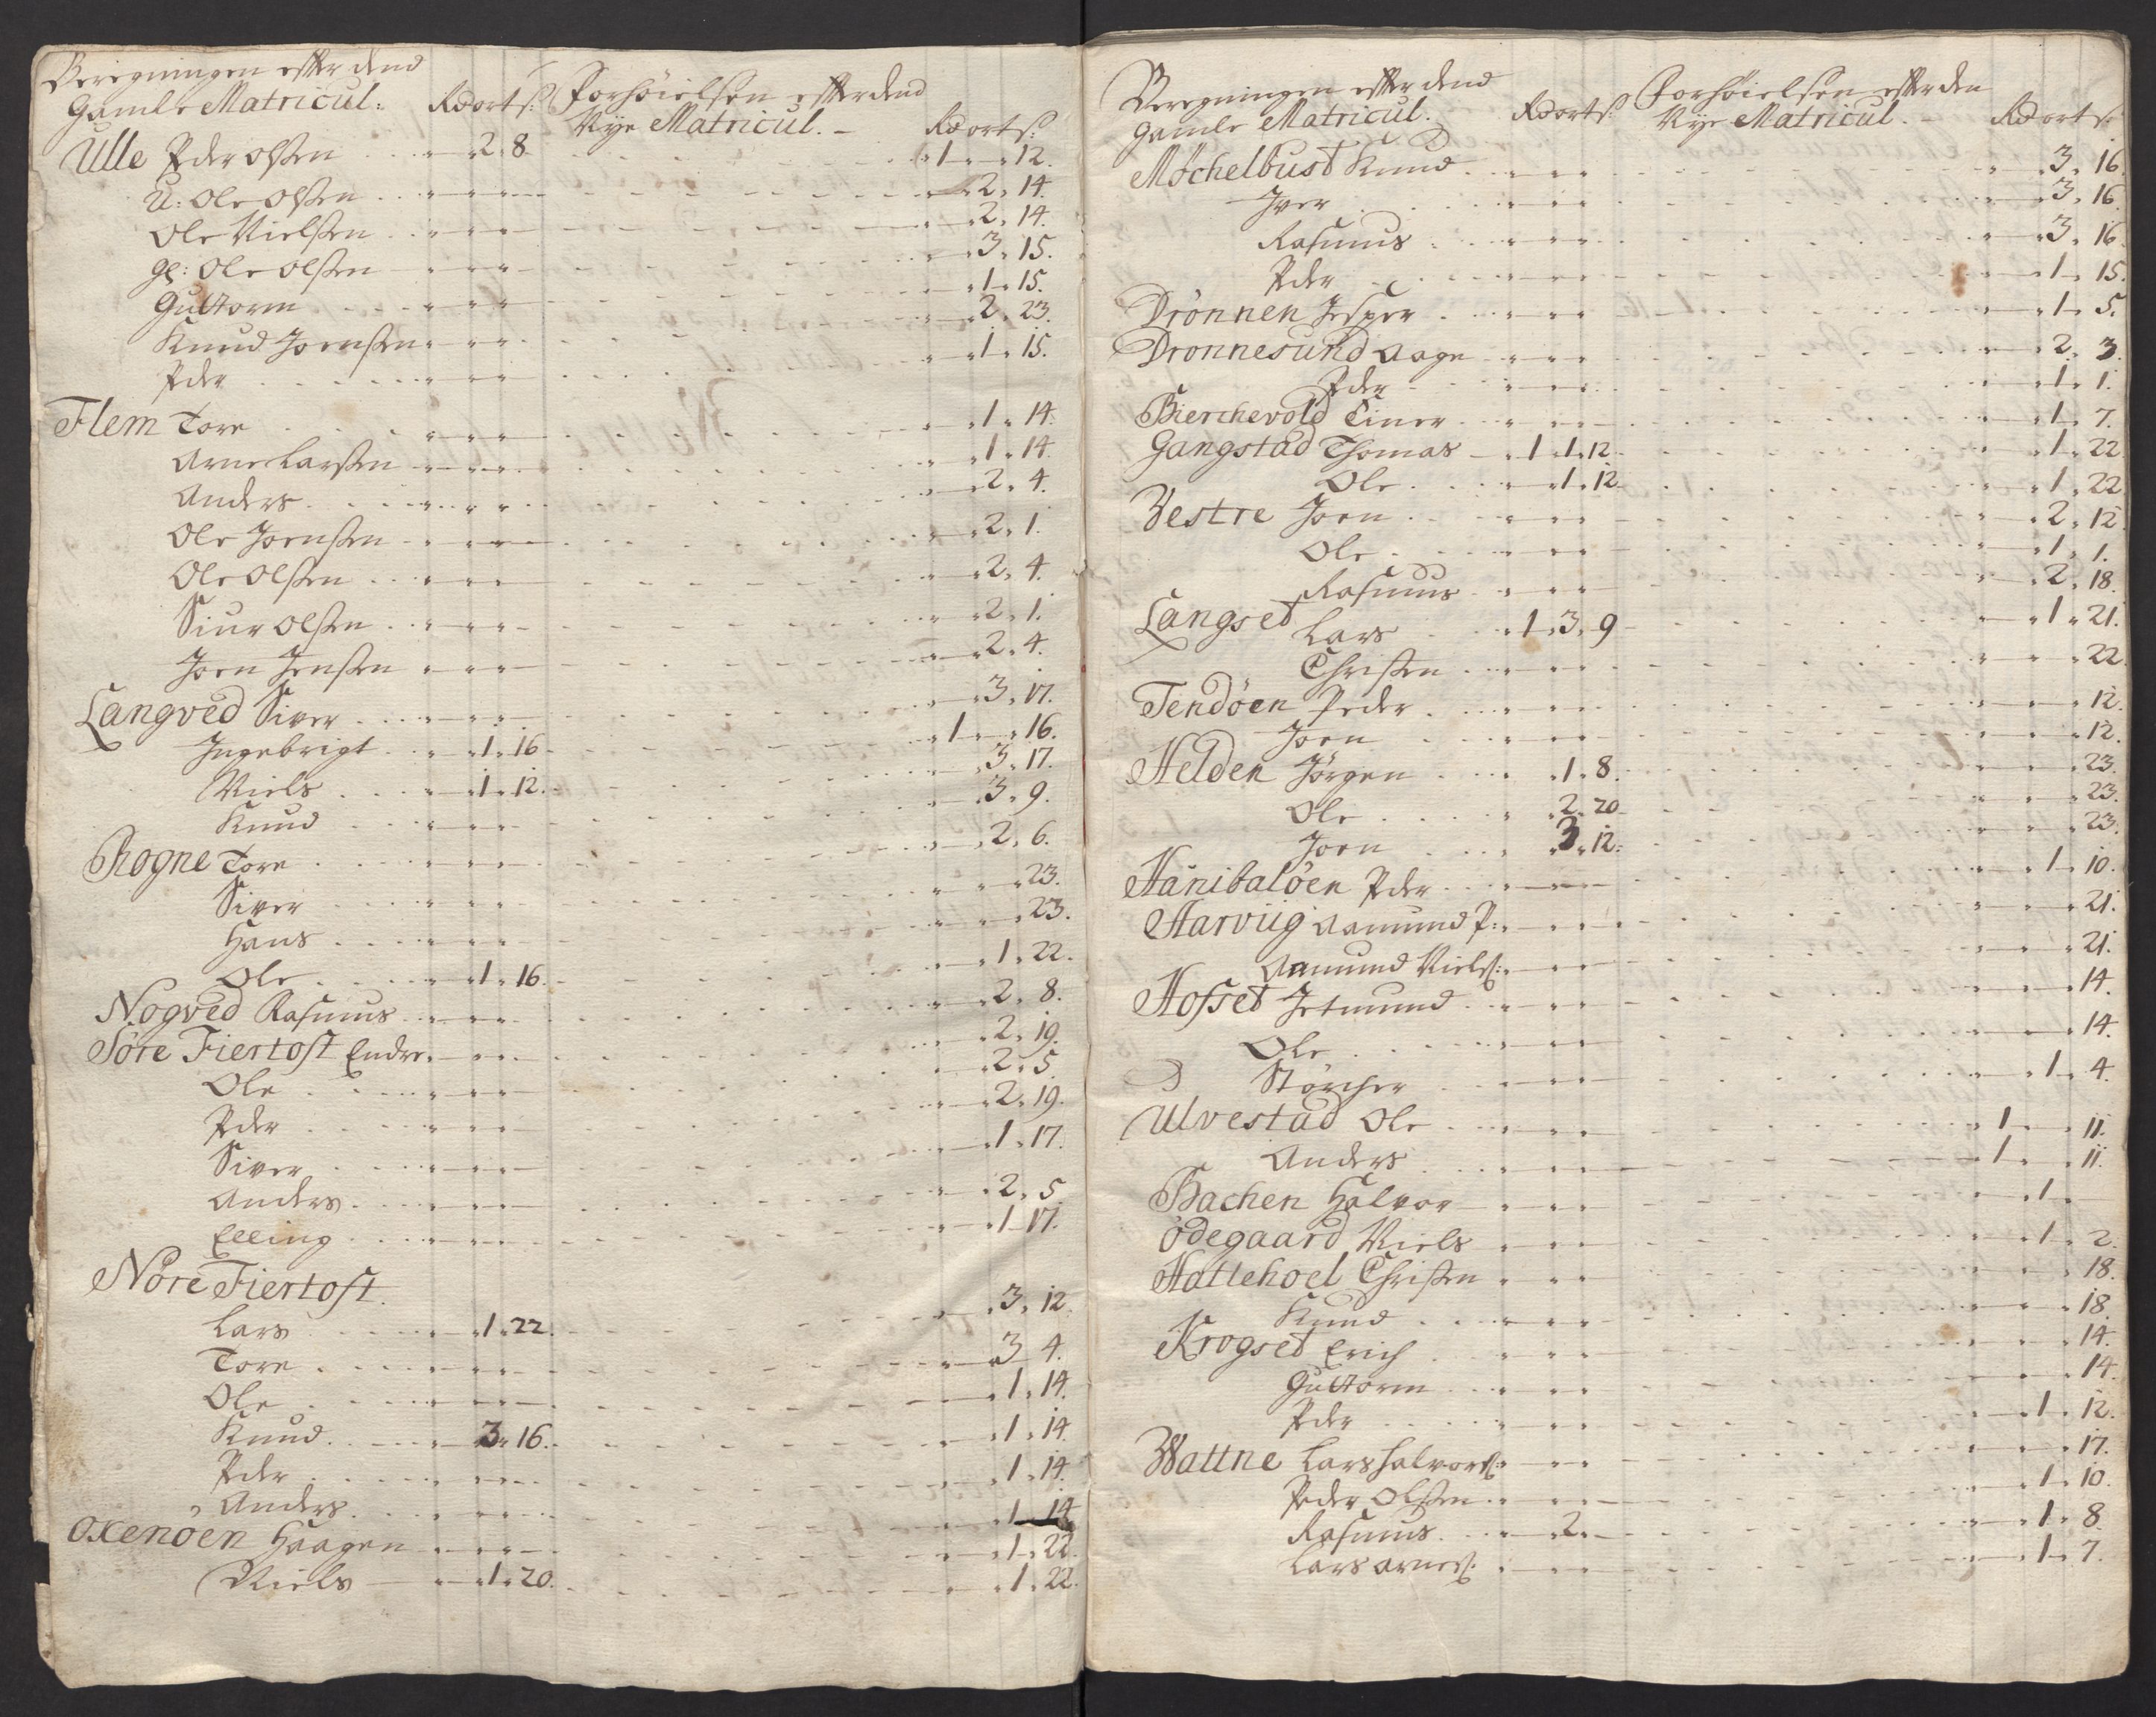 Beregningen efter dend
Gamle Matricul: Rd ort s: Forhöielsen efter dend
Nye Matricul. - Rd ort s:
Ulle Peder Olsen 2. 8. 1. 12.
U: Ole Olsen 2. 14.
Ole Nielsen 2. 14.
gl: Ole Olsen 3. 15.
Guttorm 1. 15.
Knud Joensen 2. 23.
Peder 1. 15.
Flem Tore 1. 14.
Arne Larsen 1. 14.
Anders 2. 4.
Ole Joensen 2. 1.
Ole Olsen 2. 4.
Siur Olsen 2. 1.
Joen Jensen 2. 4.
Langved Siver 3. 17.
Ingebrigt 1. 16 1. 16.
Niels 1. 12. 3. 17.
Knud 3. 9.
Rogne Tore 2. 6.
Siver 23.
Hans 23.
Ole 1. 16. 1. 22.
Nogved Rasmus 2. 8.
Söre Fiertoft Endre 2. 19.
Ole 2. 5.
Peder 2. 19.
Siver 1. 17.
Anders 2. 5.
Elling 1. 17.
Nöre Fiertoft.
Lars 1. 22. 3. 12.
Tore 3. 4.
Ole 1. 14.
Knud 3. 16. 1. 14.
Peder 1. 14.
Anders 1. 14.
Oxenöen Haagen 1. 22.
Niels 1. 20. 1. 22.
Beregningen efter dend
Gamle Matricul. Rd ort s: Forhöielsen efter den
Nye Matricul. - Rd ort s:
Möchelbust Knud 3. 16.
Iver 3. 16.
Rasmus 3. 16.
Peder 1. 15.
Drönnen Jesper 1. 5.
Dronnesund Aage 2. 3.
Peder 1. 1.
Bierchevold Einer 1. 7.
Gangstad Thomas 1. 1. 12. 1. 22
Ole 1. 12. 1. 22
Vestre Joen 2. 12
Ole 1. 1.
Rasmus 2. 18.
Langset Lars 1. 3. 9 1. 21.
Christen 22.
Tendöen Peder 12.
Joen 12.
Helden Jörgen 1. 8. 23.
Ole 2. 20. 23.
Joen 3. 12. 23.
Hanibalöen Peder 1. 10.
Harviig Aamund P: 21.
Aamund Niels: 21.
Hofset Jetmund 14.
Ole 14.
Störcher 1. 4.
Ulvestad Ole 1. 11.
Anders 1. 11.
Bachen Halvor 1.
Ödegaard Niels 1. 2.
Hattehoel Christen 18.
Knud 18.
Krogset Erich 14.
Guttorm 14.
Peder 1. 12.
Wattne Lars Halvors: 17.
Peder Olsen 1. 10.
Rasmus 2. 1. 8.
Lars Arnes: 1. 7.